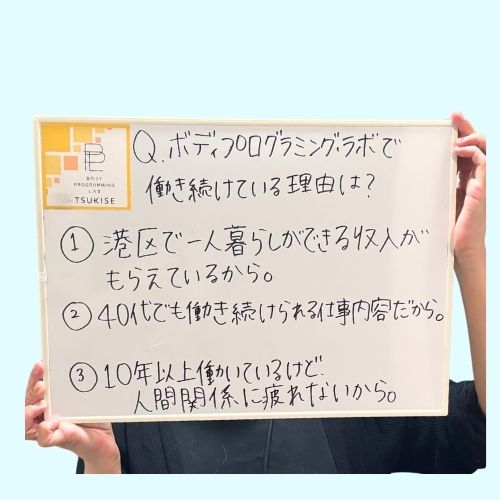 BODY
PROGRAMMING
LAB
TSUKISE
Q.ボディプログラミング・ラボで
働き続けている理由は?
① 港区で一人暮らしができる収入が
もらえているから。
② 40代でも働き続けられる仕事内容だから。
③ 10年以上働いているけど、
人間関係に疲れないから。